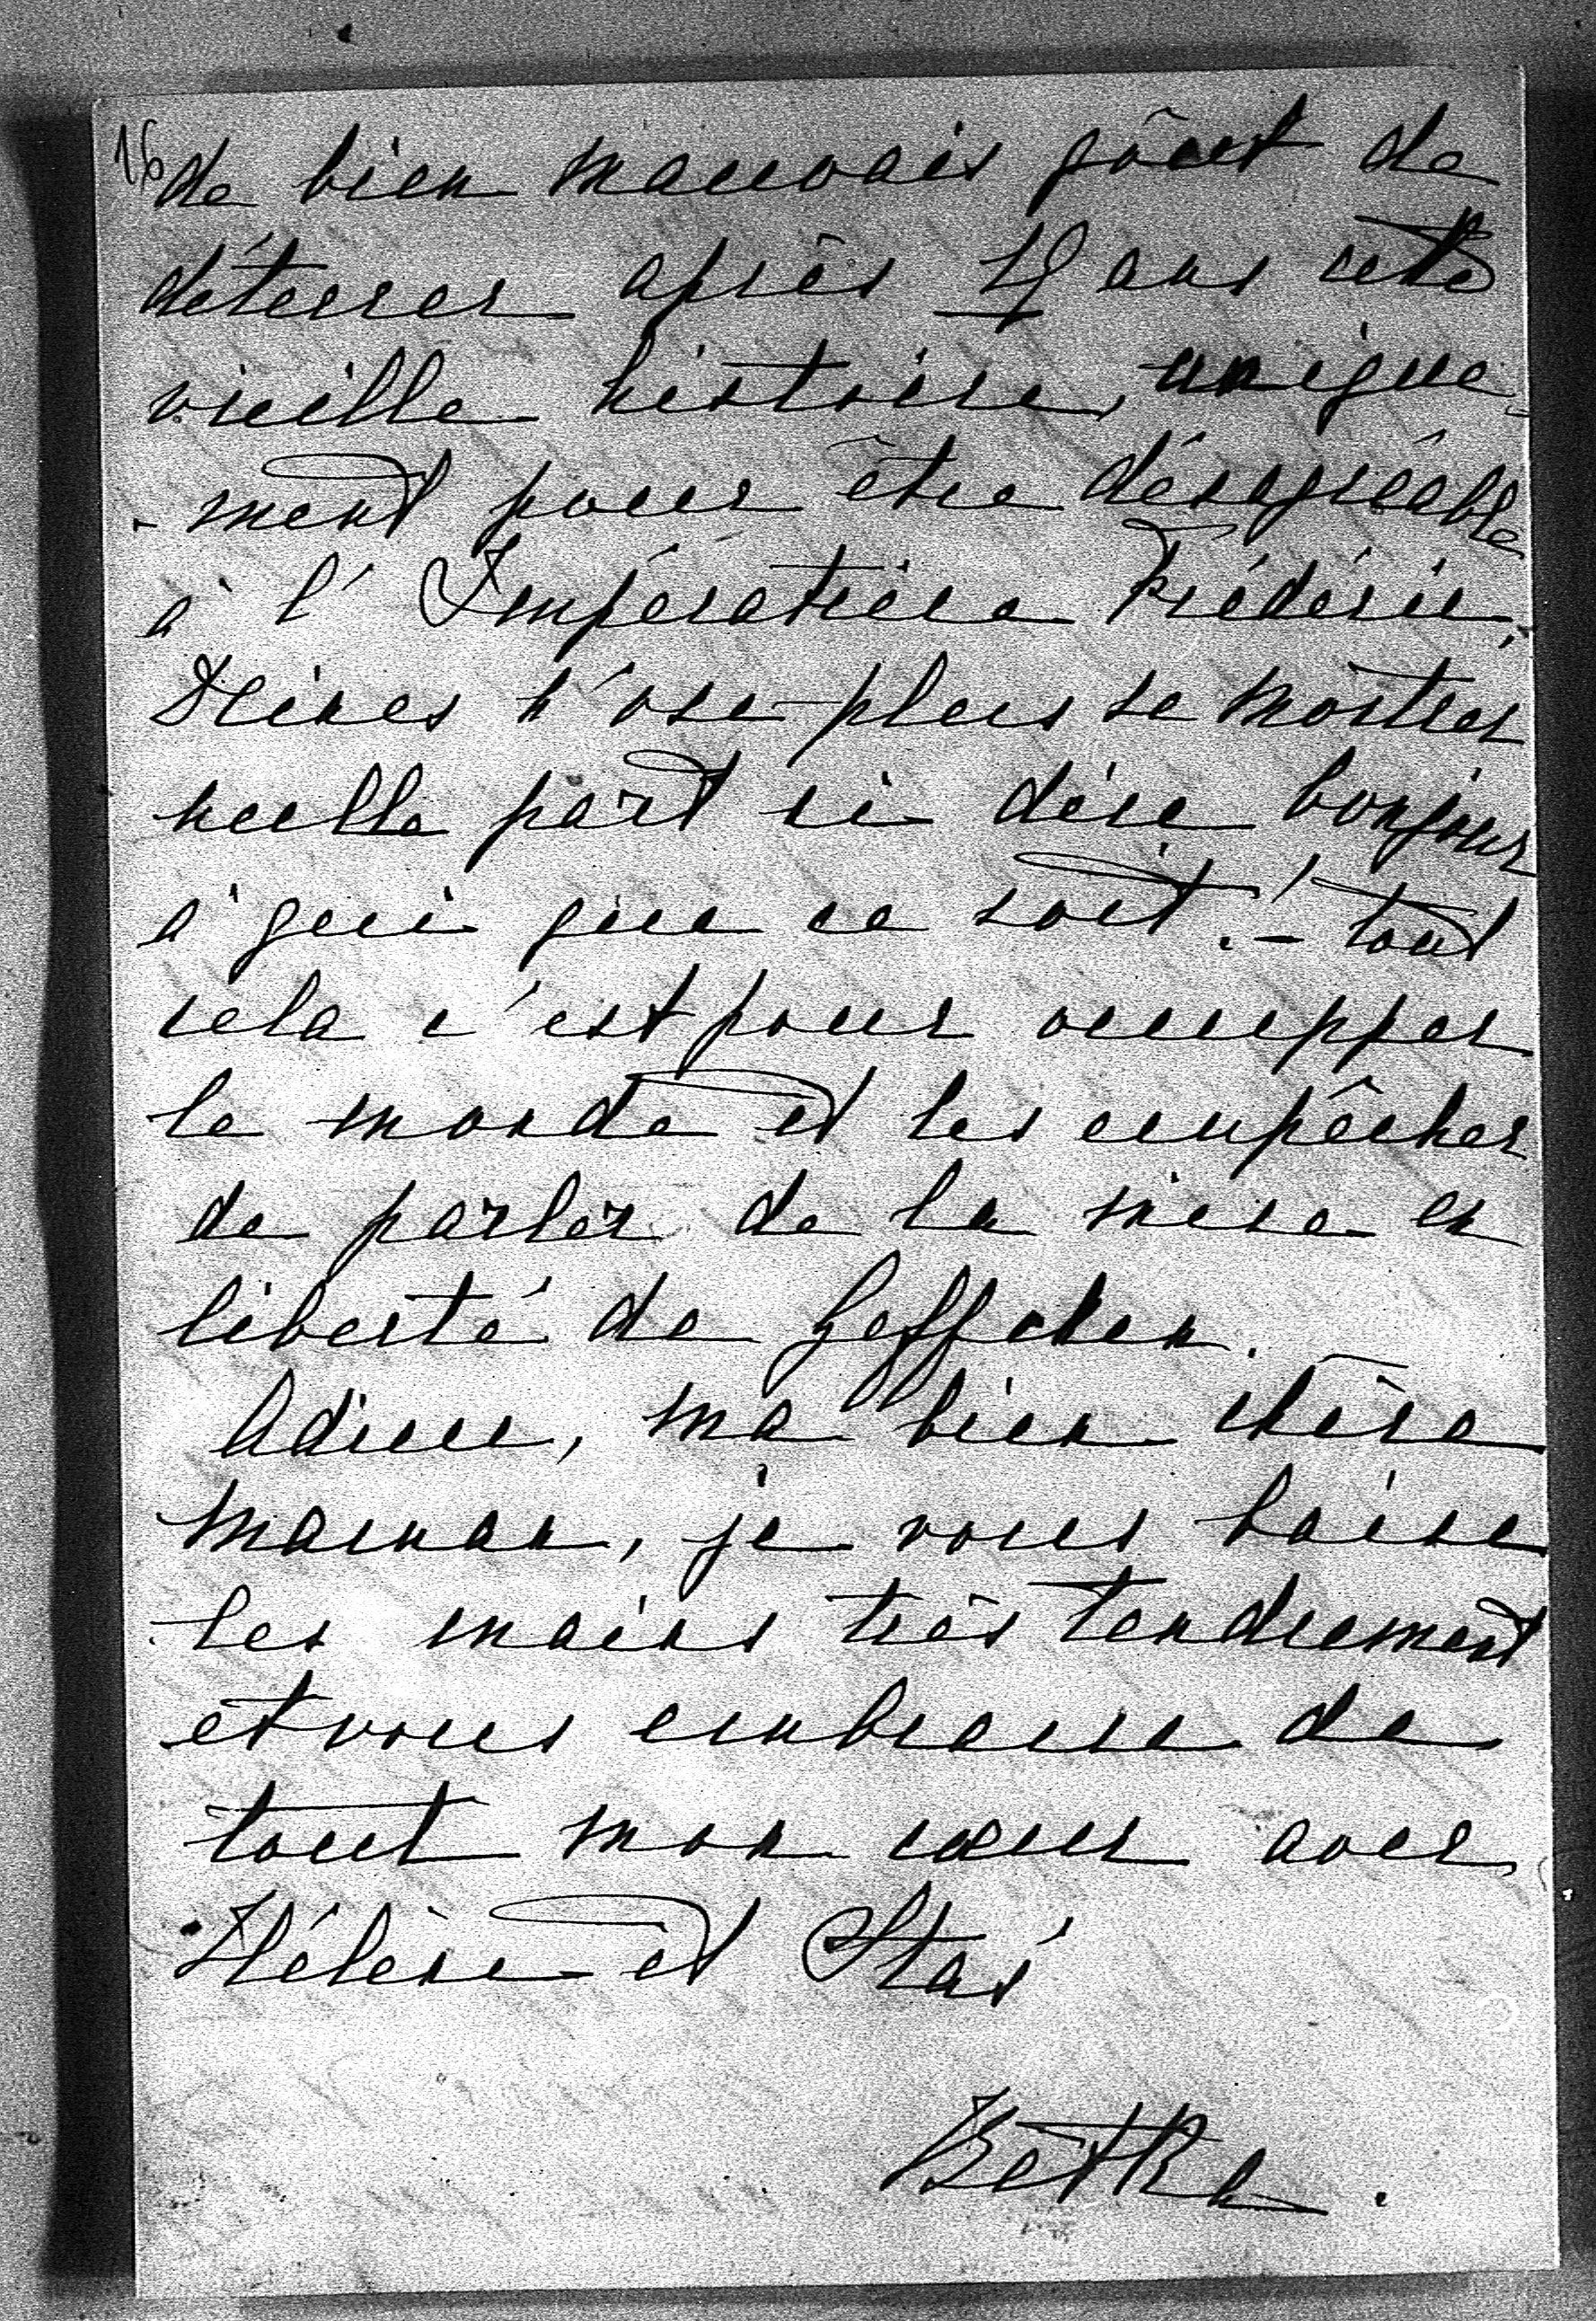 16 de bien mauvais goût de
déterrer après ans cette
vieille histoire, unique-
-ment pour être désagréable
à l'Impératrice Frédéric,
n'ose plus se montrer
nulle part ni dire bonjour
à qui que ce soit! – tout
cela c'est pour occupper
le monde et les empêcher
de parler de la mise en
liberté de Geffcken. –
Adieu, ma bien chère
maman, je vous baise
les mains très tendrement
et vous embrasse de
tout mon cœur avec
Hélène et Staś